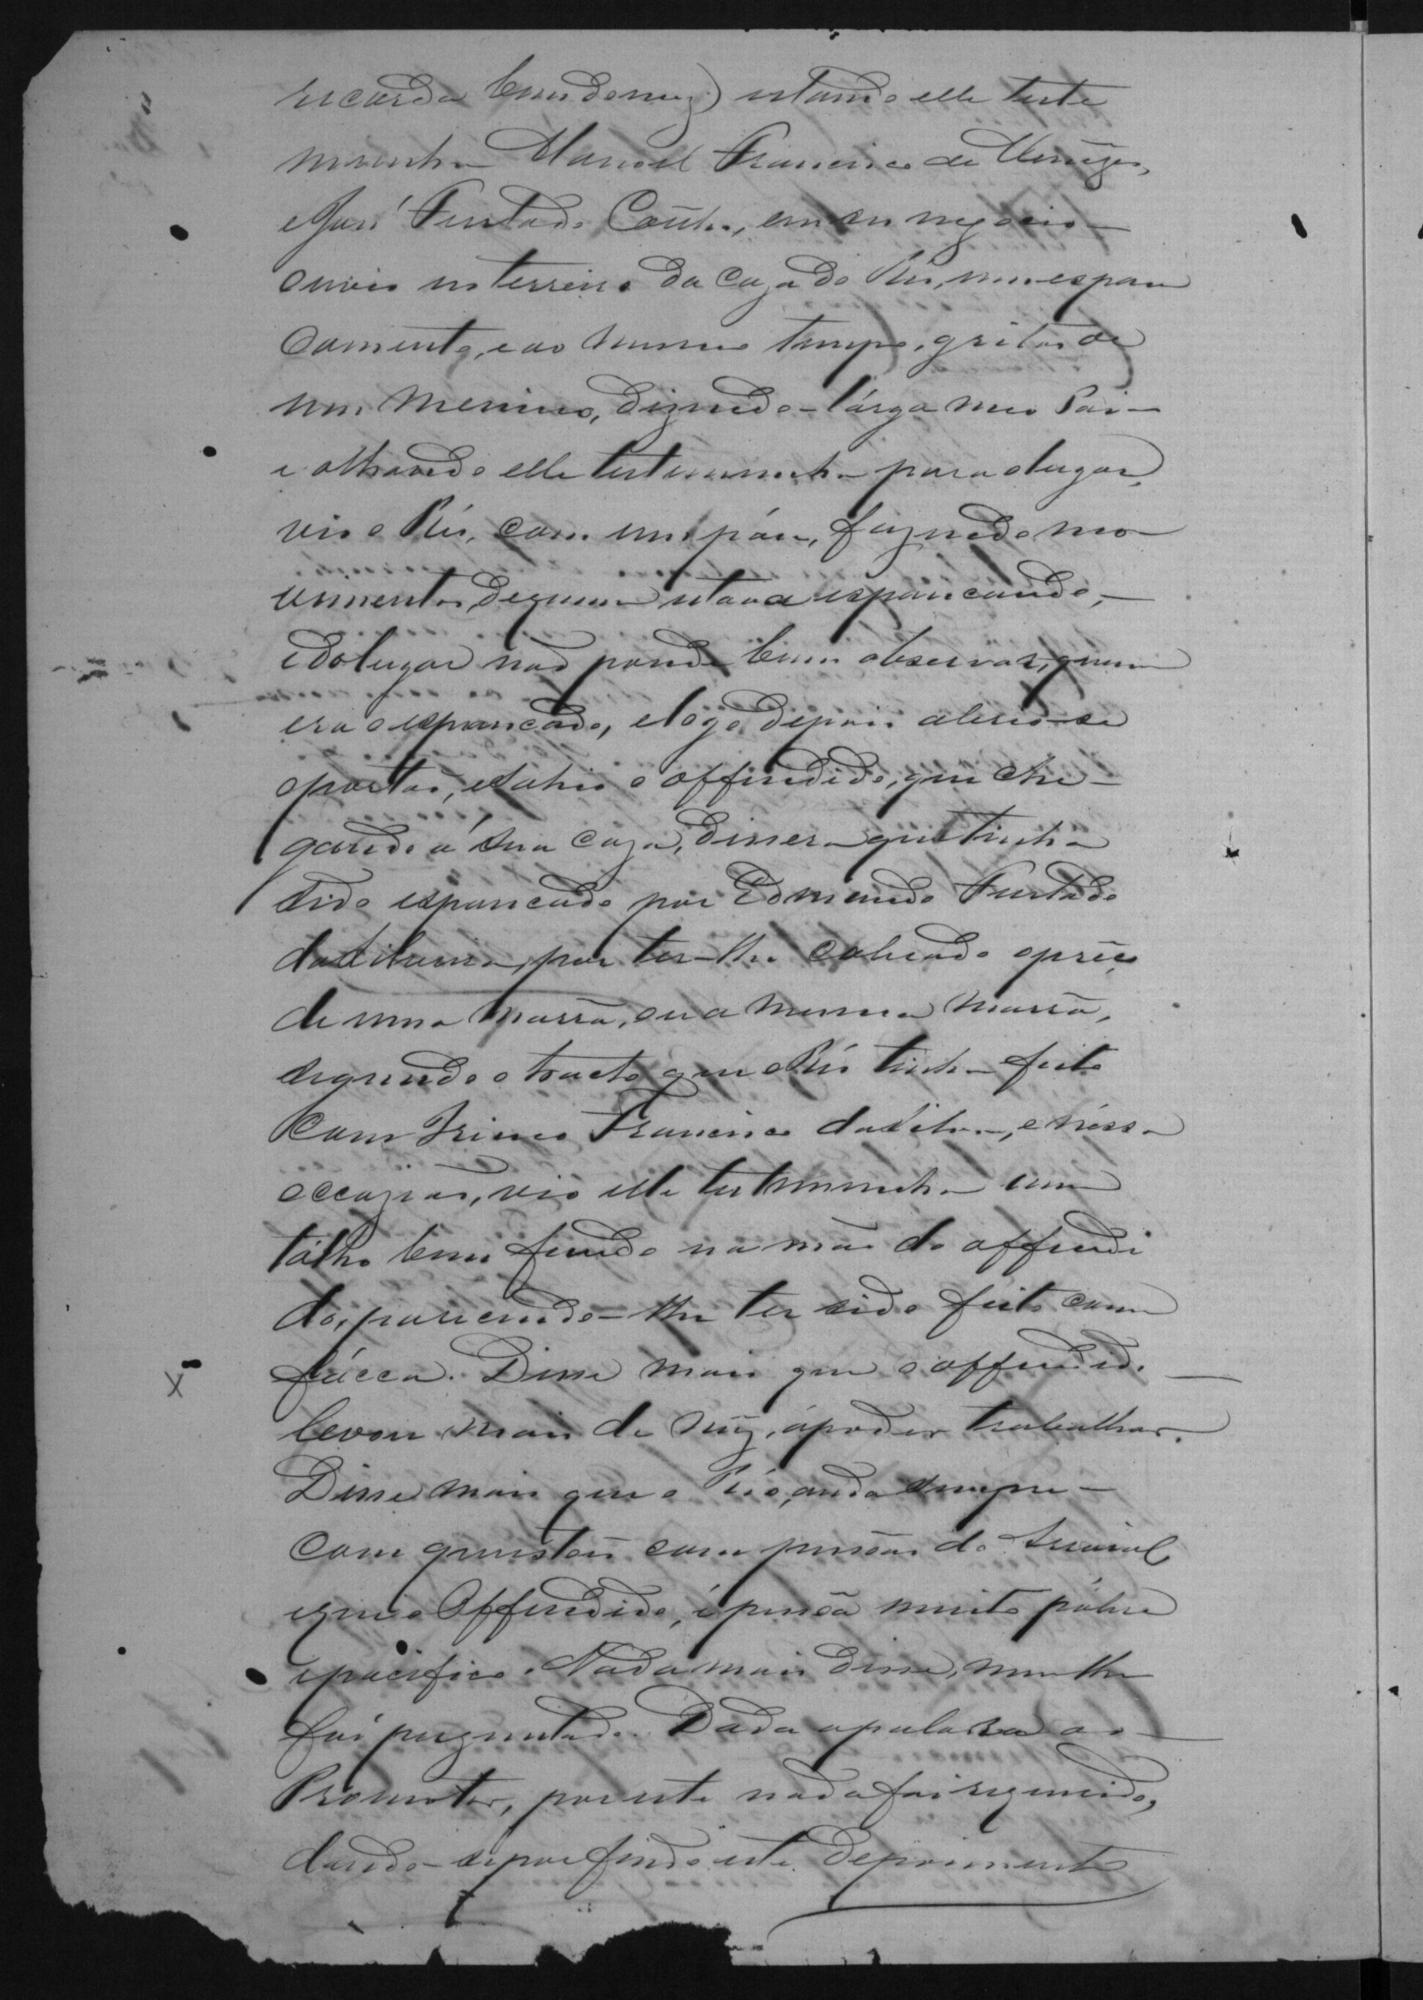 recorda bem do mez) estando elle teste
munha Manoel Francisco de Menezes,
e José Furtado Coutº, em seu negocio
ouvio no terreiro da caza do Réu, um espan
camento, e ao mesmo tempo, gritos de
um menino, dizendo - lárga meu Pai -
e olhando elle testemunha para o lugar,
vio o Réu, com um páu, fazendo mo
vimentos de quem estava espancando,
e do lugar não poude bem observar, quem
era o espancado, e logo depois abrio-se
a porta, e sahio o offendido, que che-
gando á sua caza, dissera que tinha
sido espancado por Edmundo Furtado
da Silveira, por ter-lhe cobrado o preço
de uma marrã, ou a mesma marrã,
segundo o tracto que o Réu tinha feito
com Irineo Francisco da Silva, e néssa
occazião, vio elle testemunha um
tálho bem fundo na mão do offendi
do, parecendo-lhe ter sido feito com
fácca. Disse mais que o offendido
levou mais de mez, á poder trabalhar.
Disse mais que o Réo, anda sempre
com questões com pessôas do
e que o Offendido, é pessôa muito póbre
e pacifica. Nada mais disse, nem lhe
foi perguntado. Dada a palavra ao
Promotor, por este nada foi requerido,
dando-se por findo este depoimento